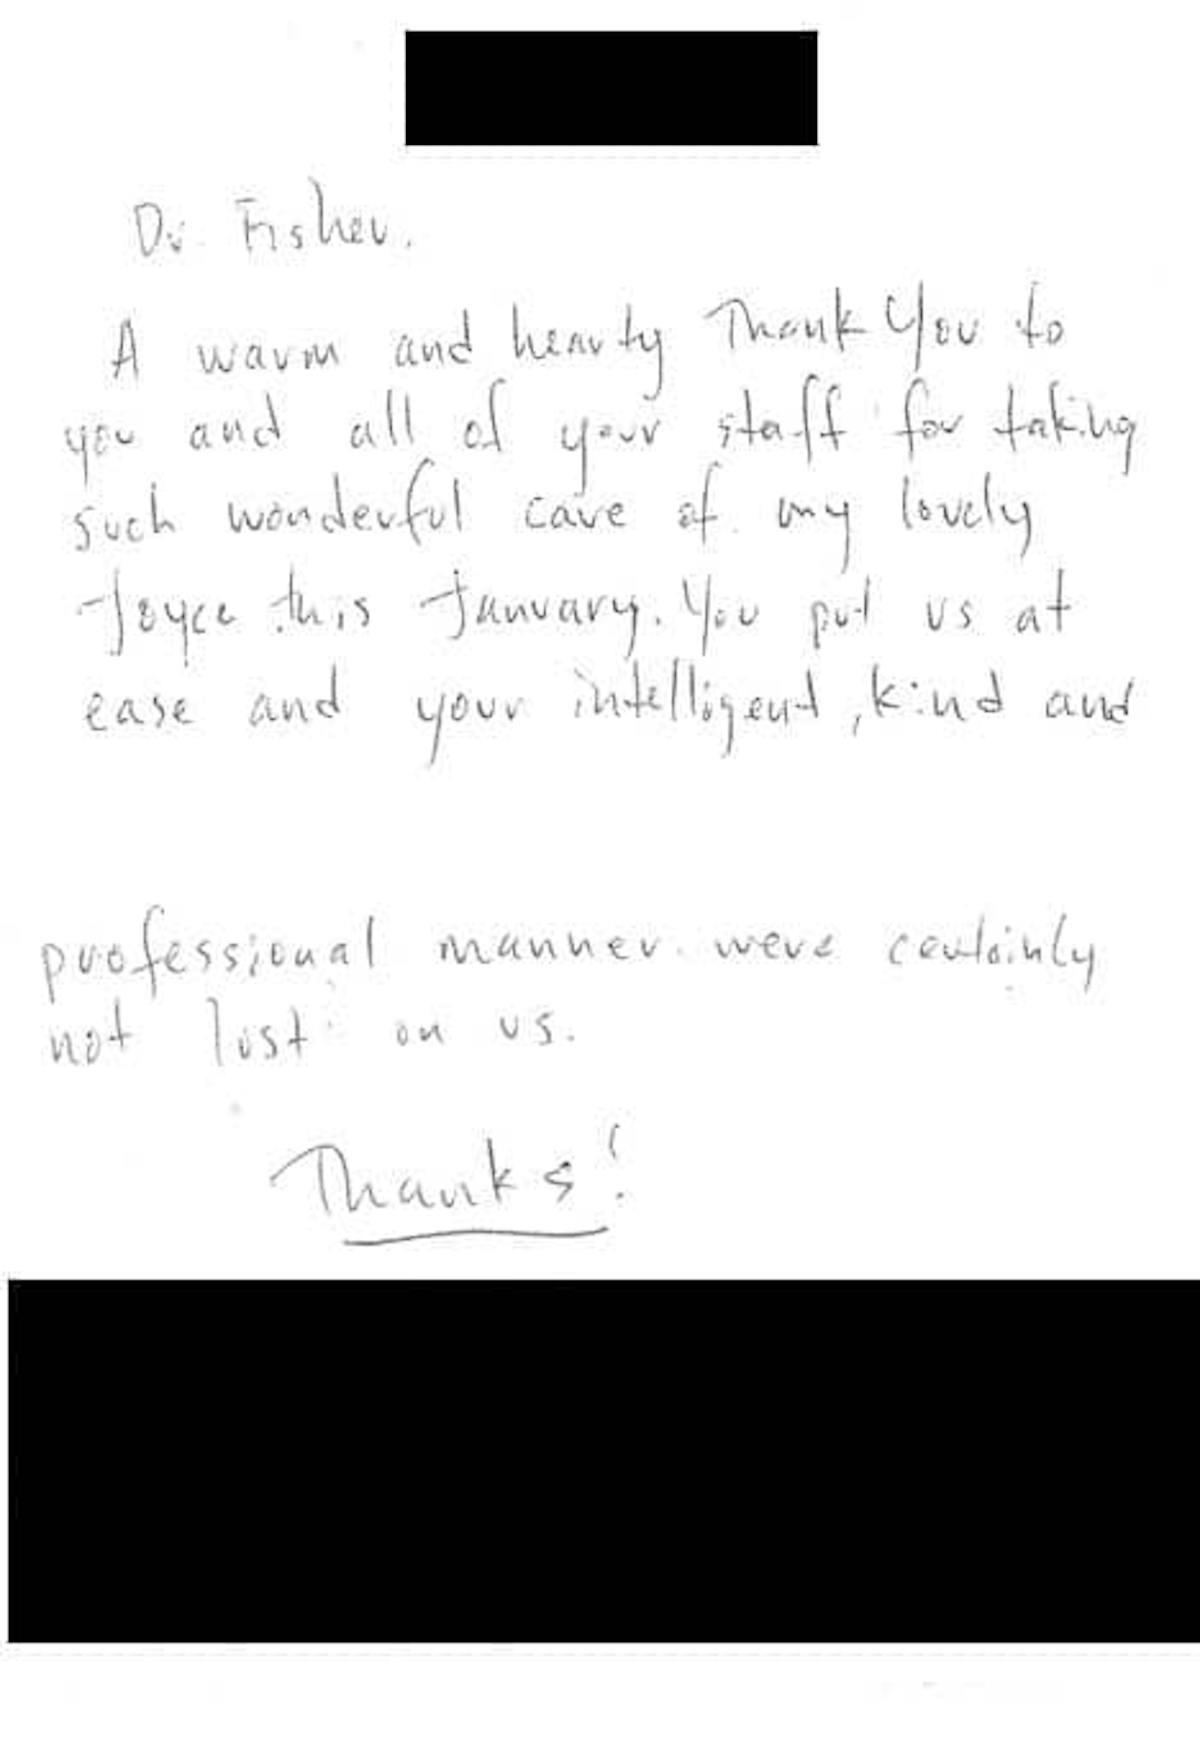 Dr. Fisher,
A warm and hearty Thank You to
you and all of your staff for taking
such wonderful care of my lovely
Joyce this January. You put us at
ease and your intelligent, kind and
professional manner were certainly
not lost on us.
Thanks!